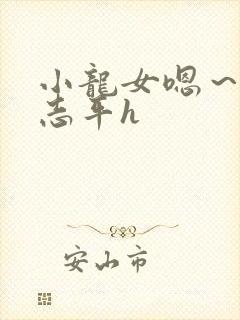 小龍女嗯~
志平h
安山市